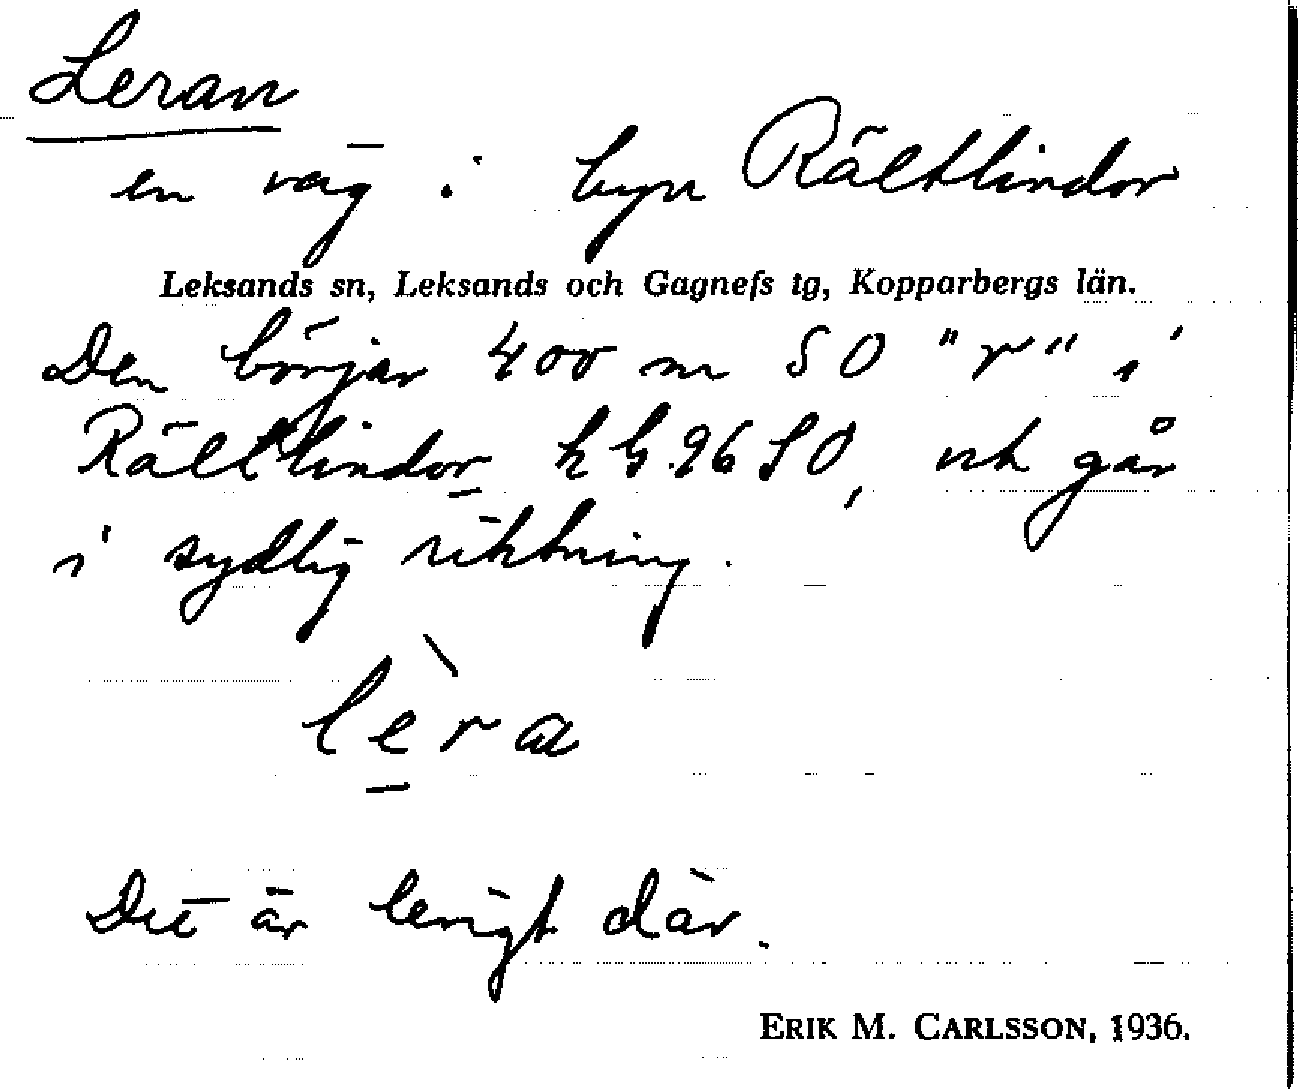 Leran
en väg i byn Rältlindor
Leksands sn, Leksands och Gagnefs tg, Kopparbergs län.
Den börjar 400 m SO "r" i
Rältlindor, h G.96 SO, och går
i sydlig riktning.
lèra
Det är lerigt där.
ERIK M. CARLSSON, 1936.